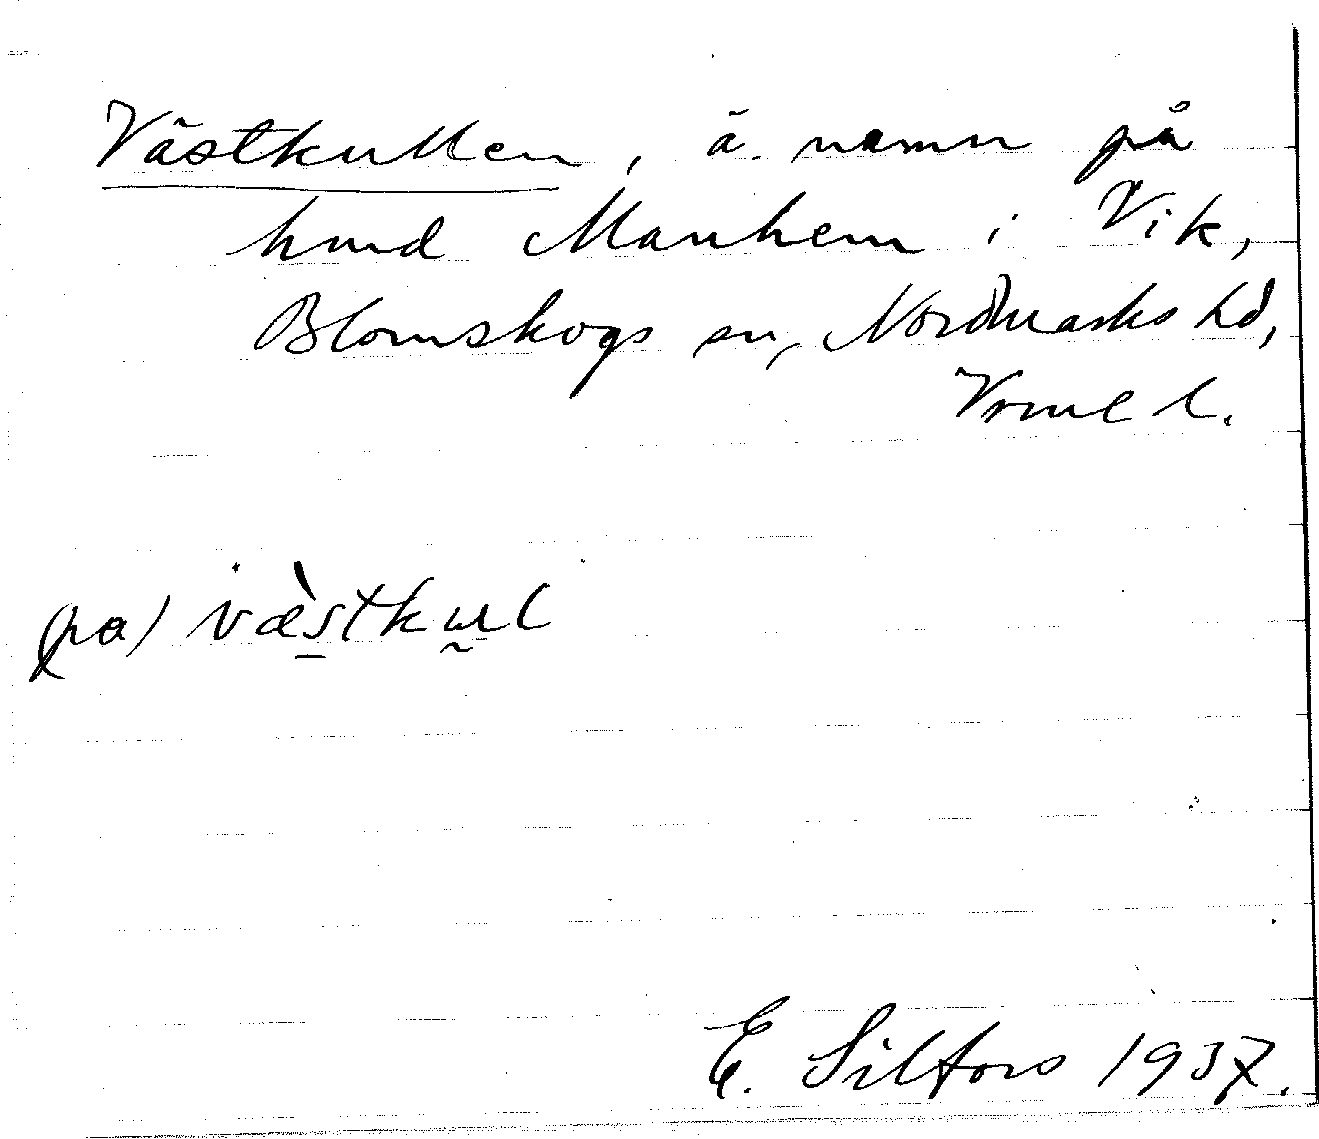 Västkullen, ä. namn på
hmd Manhem i Vik,
Blomskogs sn, Nordmarks hd,
Vrml l.
(på) væ̀stkul
E. Silfors 1937.